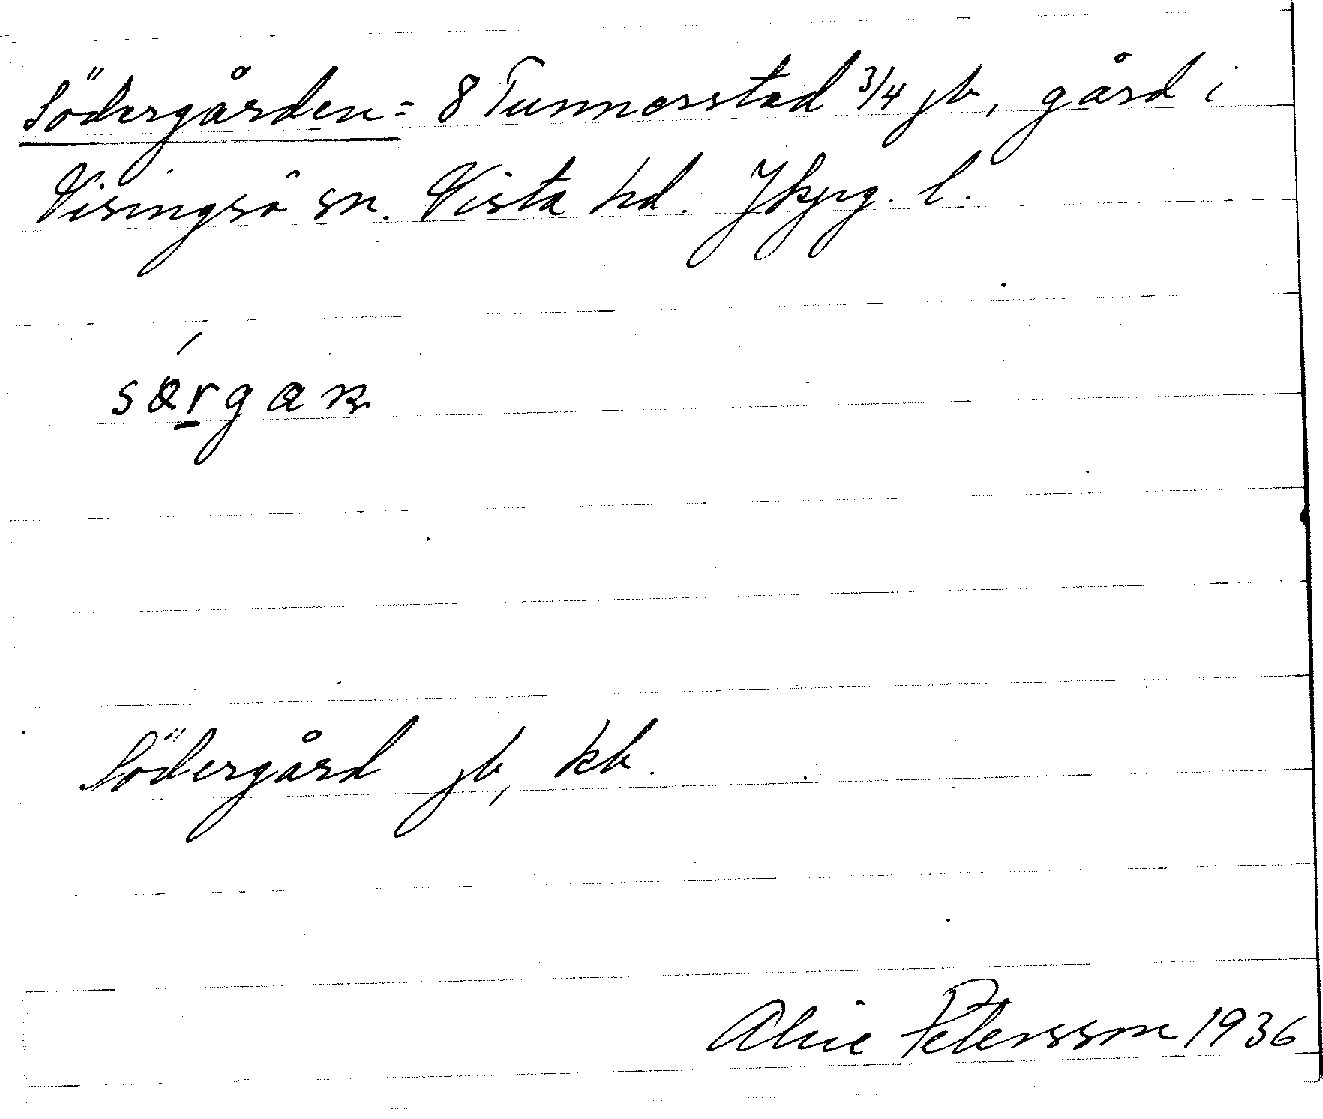 Södergården = 8 Tunnerstad 3/4 jb, gård i
Visingsö sn. Vista hd. Jkpg. l.
Södergård jb, kb.
Alice Petersson 1936